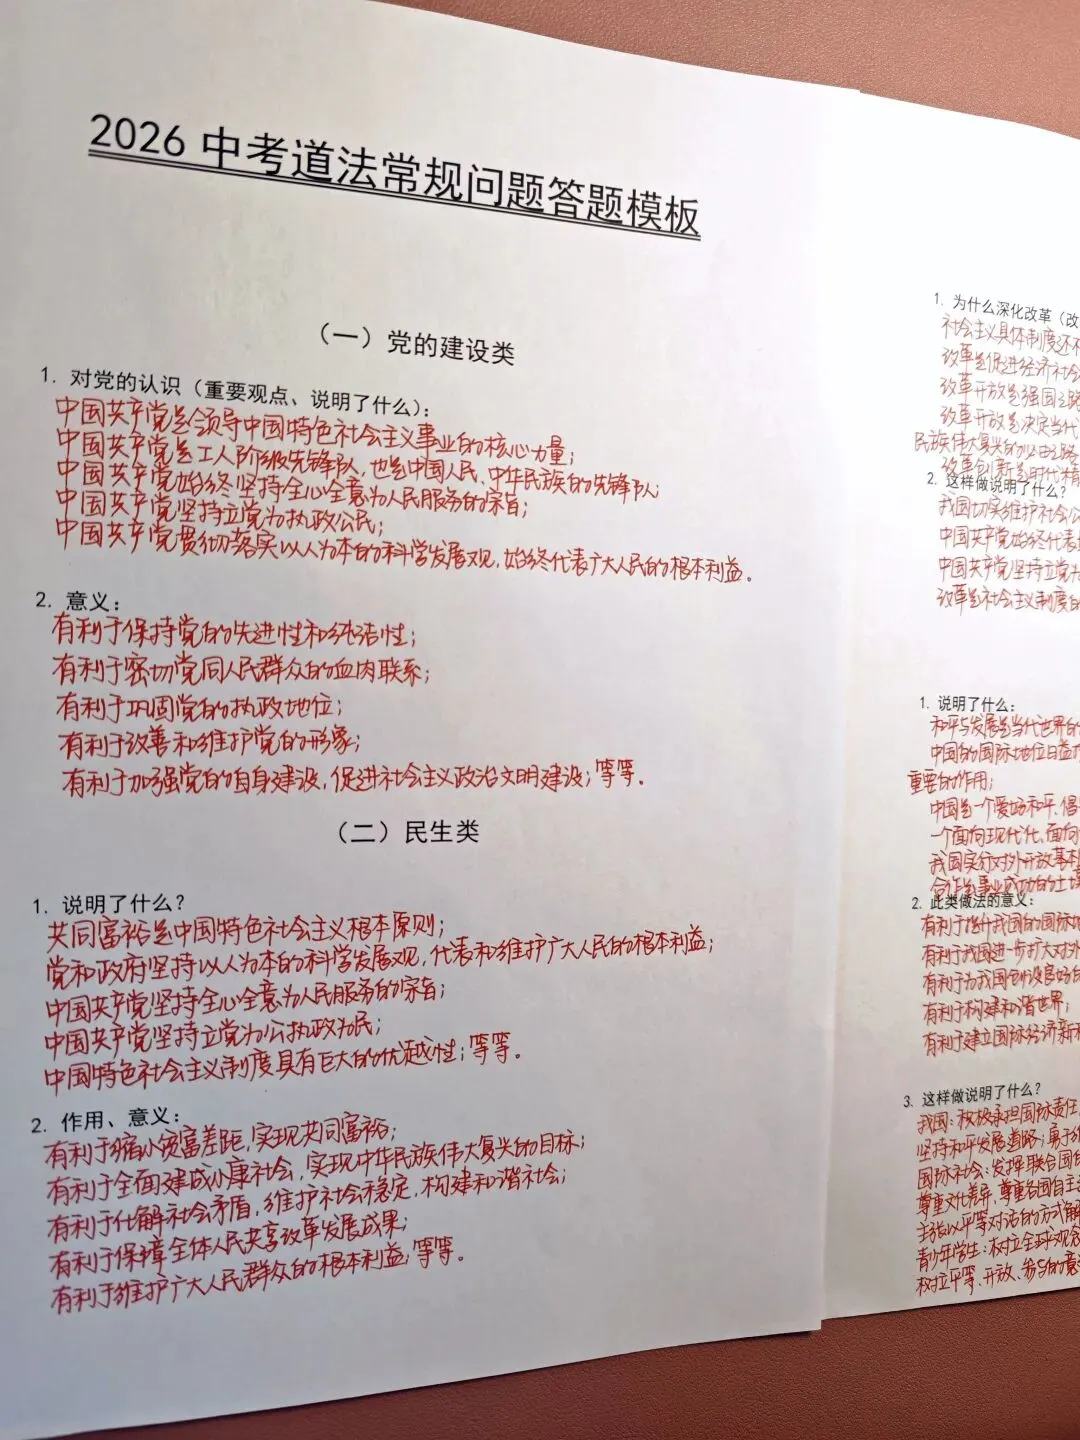 2026 中考道法常规问题答题模板
（一）党的建设类
1. 对党的认识（重要观点、说明了什么）：
中国共产党是领导中国特色社会主义事业的核心力量；
中国共产党是工人阶级先锋队，也是中国人民、中华民族的先锋队；
中国共产党始终坚持全心全意为人民服务的宗旨；
中国共产党坚持立党为执政公民；
中国共产党贯彻落实以人为本的科学发展观，始终代表广大人民的根本利益。
2. 意义：
有利于保持党的先进性和纯洁性；
有利于密切党同人民群众的血肉联系；
有利于巩固党的执政地位；
有利于改善和维护党的形象；
有利于加强党的自身建设，促进社会主义政治文明建设；等等。
（二）民生类
1. 说明了什么？
共同富裕是中国特色社会主义根本原则；
党和政府坚持以人为本的科学发展观，代表和维护广大人民的根本利益；
中国共产党坚持全心全意为人民服务的宗旨；
中国共产党坚持立党为公执政为民；
中国特色社会主义制度具有巨大的优越性；等等。
2. 作用、意义：
有利于缩小贫富差距，实现共同富裕；
有利于全面建成小康社会，实现中华民族伟大复兴的目标；
有利于化解社会矛盾，维护社会稳定，构建和谐社会；
有利于保障全体人民共享改革发展成果；
有利于维护广大人民群众的根本利益；等等。
1. 为什么深化改革（改
社会主义具体制度还不
改革是促进经济社会
改革开放是强国之路
改革开放是决定当代
民族伟大复兴的必由之路
改革创新是时代精
2. 这样做说明了什么？
我国切实维护社会公
中国共产党始终代表
中国共产党坚持立党为
改革是社会主义制度的
1. 说明了什么：
和平与发展是当代世界的
中国的国际地位日益
重要的作用；
中国是一个爱好和平、倡
一个面向现代化、面向
我国实行对外开放基本
合作是事业成功的土壤
2. 此类做法的意义：
有利于提升我国的国际地
有利于我国进一步扩大对外
有利于为我国创设良好的
有利于构建和谐世界；
有利于建立国际经济新
3. 这样做说明了什么？
我国：积极承担国际责任，
坚持和平发展道路；勇于
国际社会：发挥联合国
尊重文化差异，尊重各国自主
主张以平等对话的方式解
青少年学生：树立全球观念
树立平等、开放、参与的意